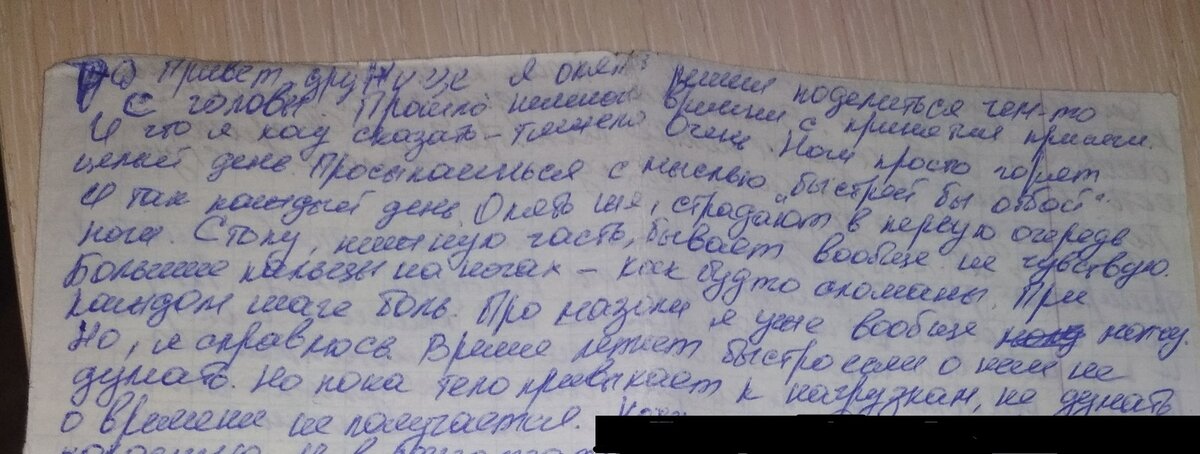 Привет, дружище я опять решил поделиться чем-то
с головы. Прошло немного времени с принятия присяги.
И что я хочу сказать – тяжело очень. Ноги просто горят
целый день. Просыпаешься с мыслью „быстрей бы отбой".
И так каждый день. Опять же, страдают в первую очередь
ноги. Стопу, нижнюю часть, бывает вообще не чувствую.
Большие пальцы на ногах – как будто сломаны. При
каждом шаге боль. Про мазоли я уже вообще молчу.
Но, я справлюсь. Время летит быстро если о нем не
думать. Но пока тело привыкает к нагрузкам, не думать
о времени не получается.